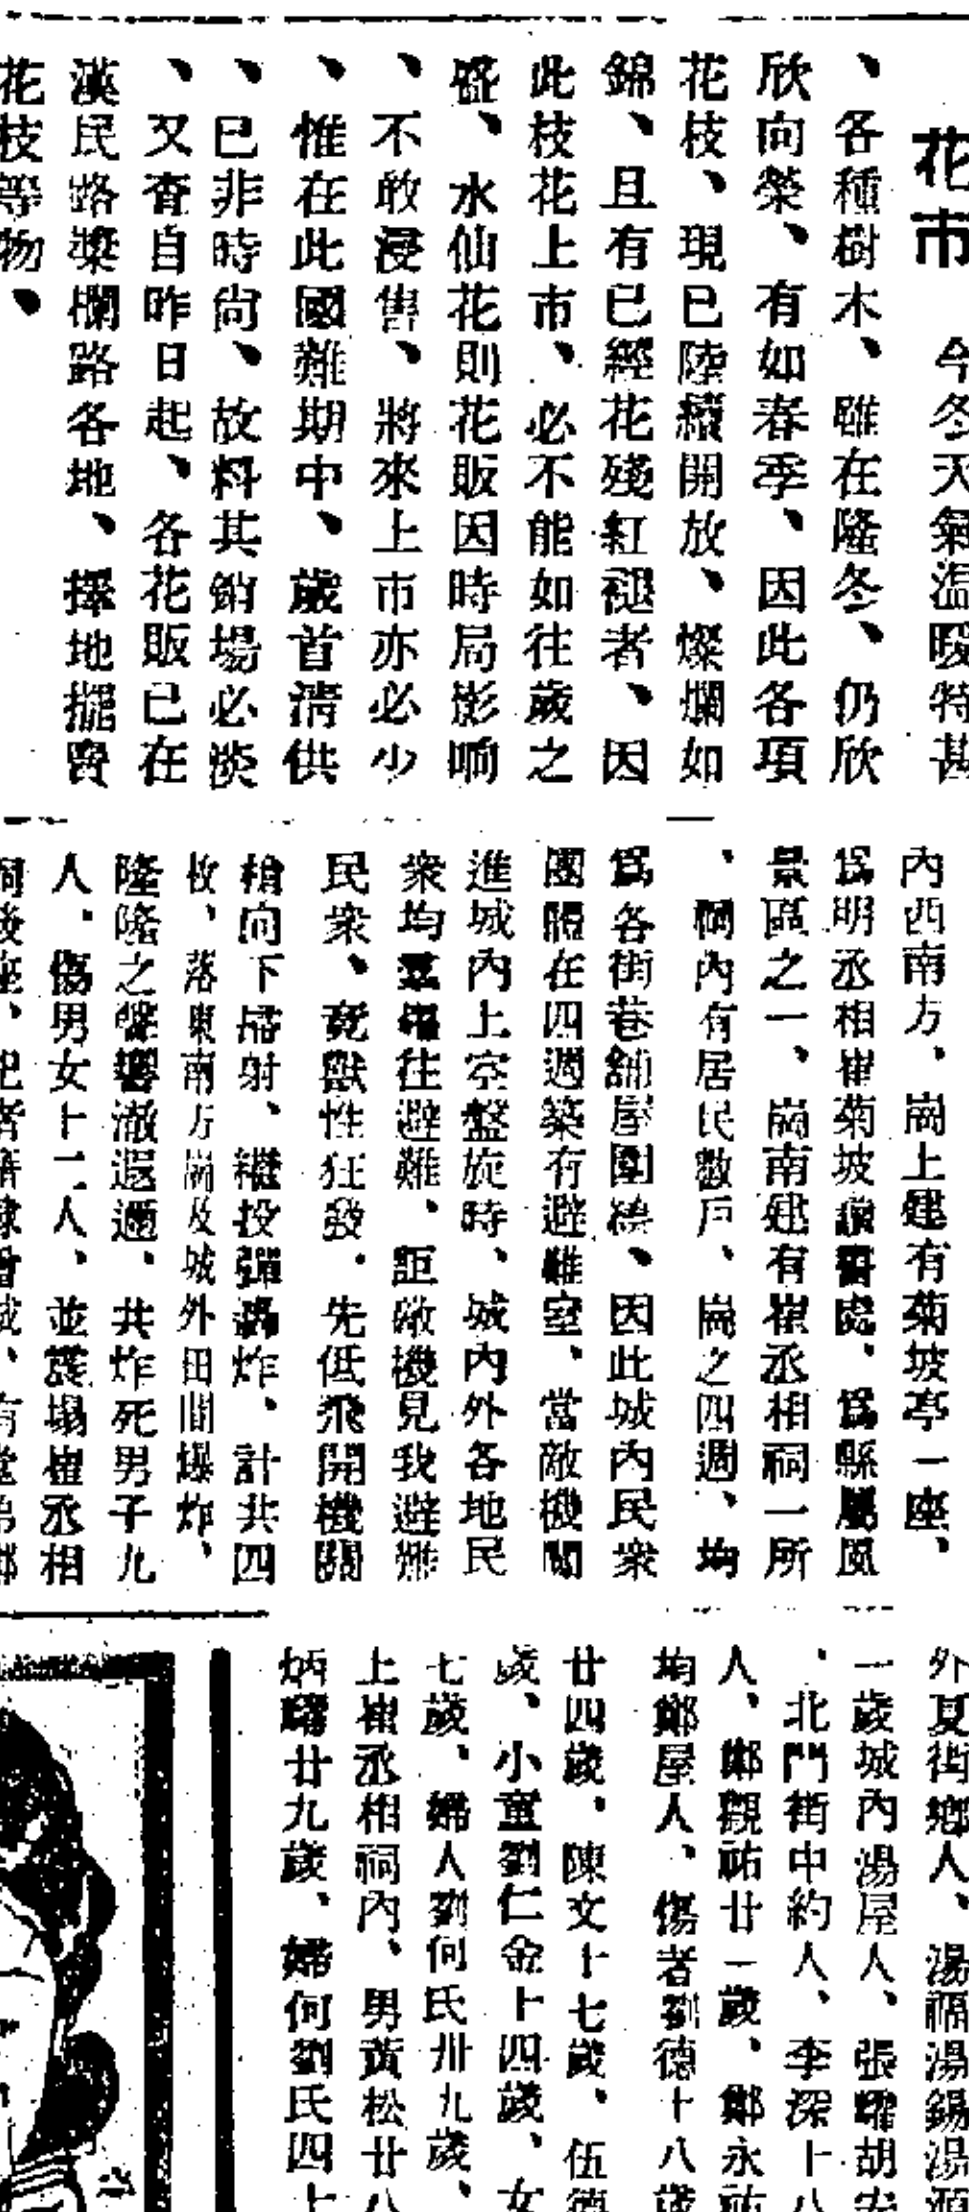 花市　今冬天氣温暖特甚
、各種樹木、雖在隆冬、仍欣
欣向榮、有如春季、因此各項
花枝、現已陸續開放、燦爛如
錦、且有已經花殘紅褪者、因
此枝花上市、必不能如往歲之
盛、水仙花則花販因時局影响
、不敢浸售、將來上市亦必少
、惟在此國難期中、歲首淸供
、已非時尙、故料其銷場必淡
、又查自昨日起、各花販已在
漢民路槳欄路各地、擇地擺賣
花枝等物、
內西南方、崗上建有菊坡亭一座、
爲明丞相崔菊坡讀書處、爲縣屬風
景區之一、崗南建有崔丞相祠一所
、祠內有居民數戶、崗之四週、均
爲各街巷舖屋圍繞、因此城內民衆
團體在四週築有避難室、當敵機闖
進城內上空盤旋時、城內外各地民
衆均羣趨往避難、詎敵機見我避難
民衆、竟獸性狂發、先低飛開機關
槍向下掃射、繼投彈轟炸、計共四
枚、落東南方崗及城外田間爆炸、
隆隆之聲響澈遐邇、共炸死男子九
人、傷男女十二人、並震塌崔丞相
外夏街鄉人、湯福湯錫湯
一歲城內湯屋人、張耀胡
、北門街中約人、李深十八
人、鄭觀祐廿一歲、鄭永祐
均鄭屋人、傷者劉德十八歲
廿四歲、陳文十七歲、伍德
歲、小童劉仁金十四歲、女
七歲、婦人劉何氏卅九歲、
上崔丞相祠內、男黃松廿八
炳曙廿九歲、婦何劉氏四十